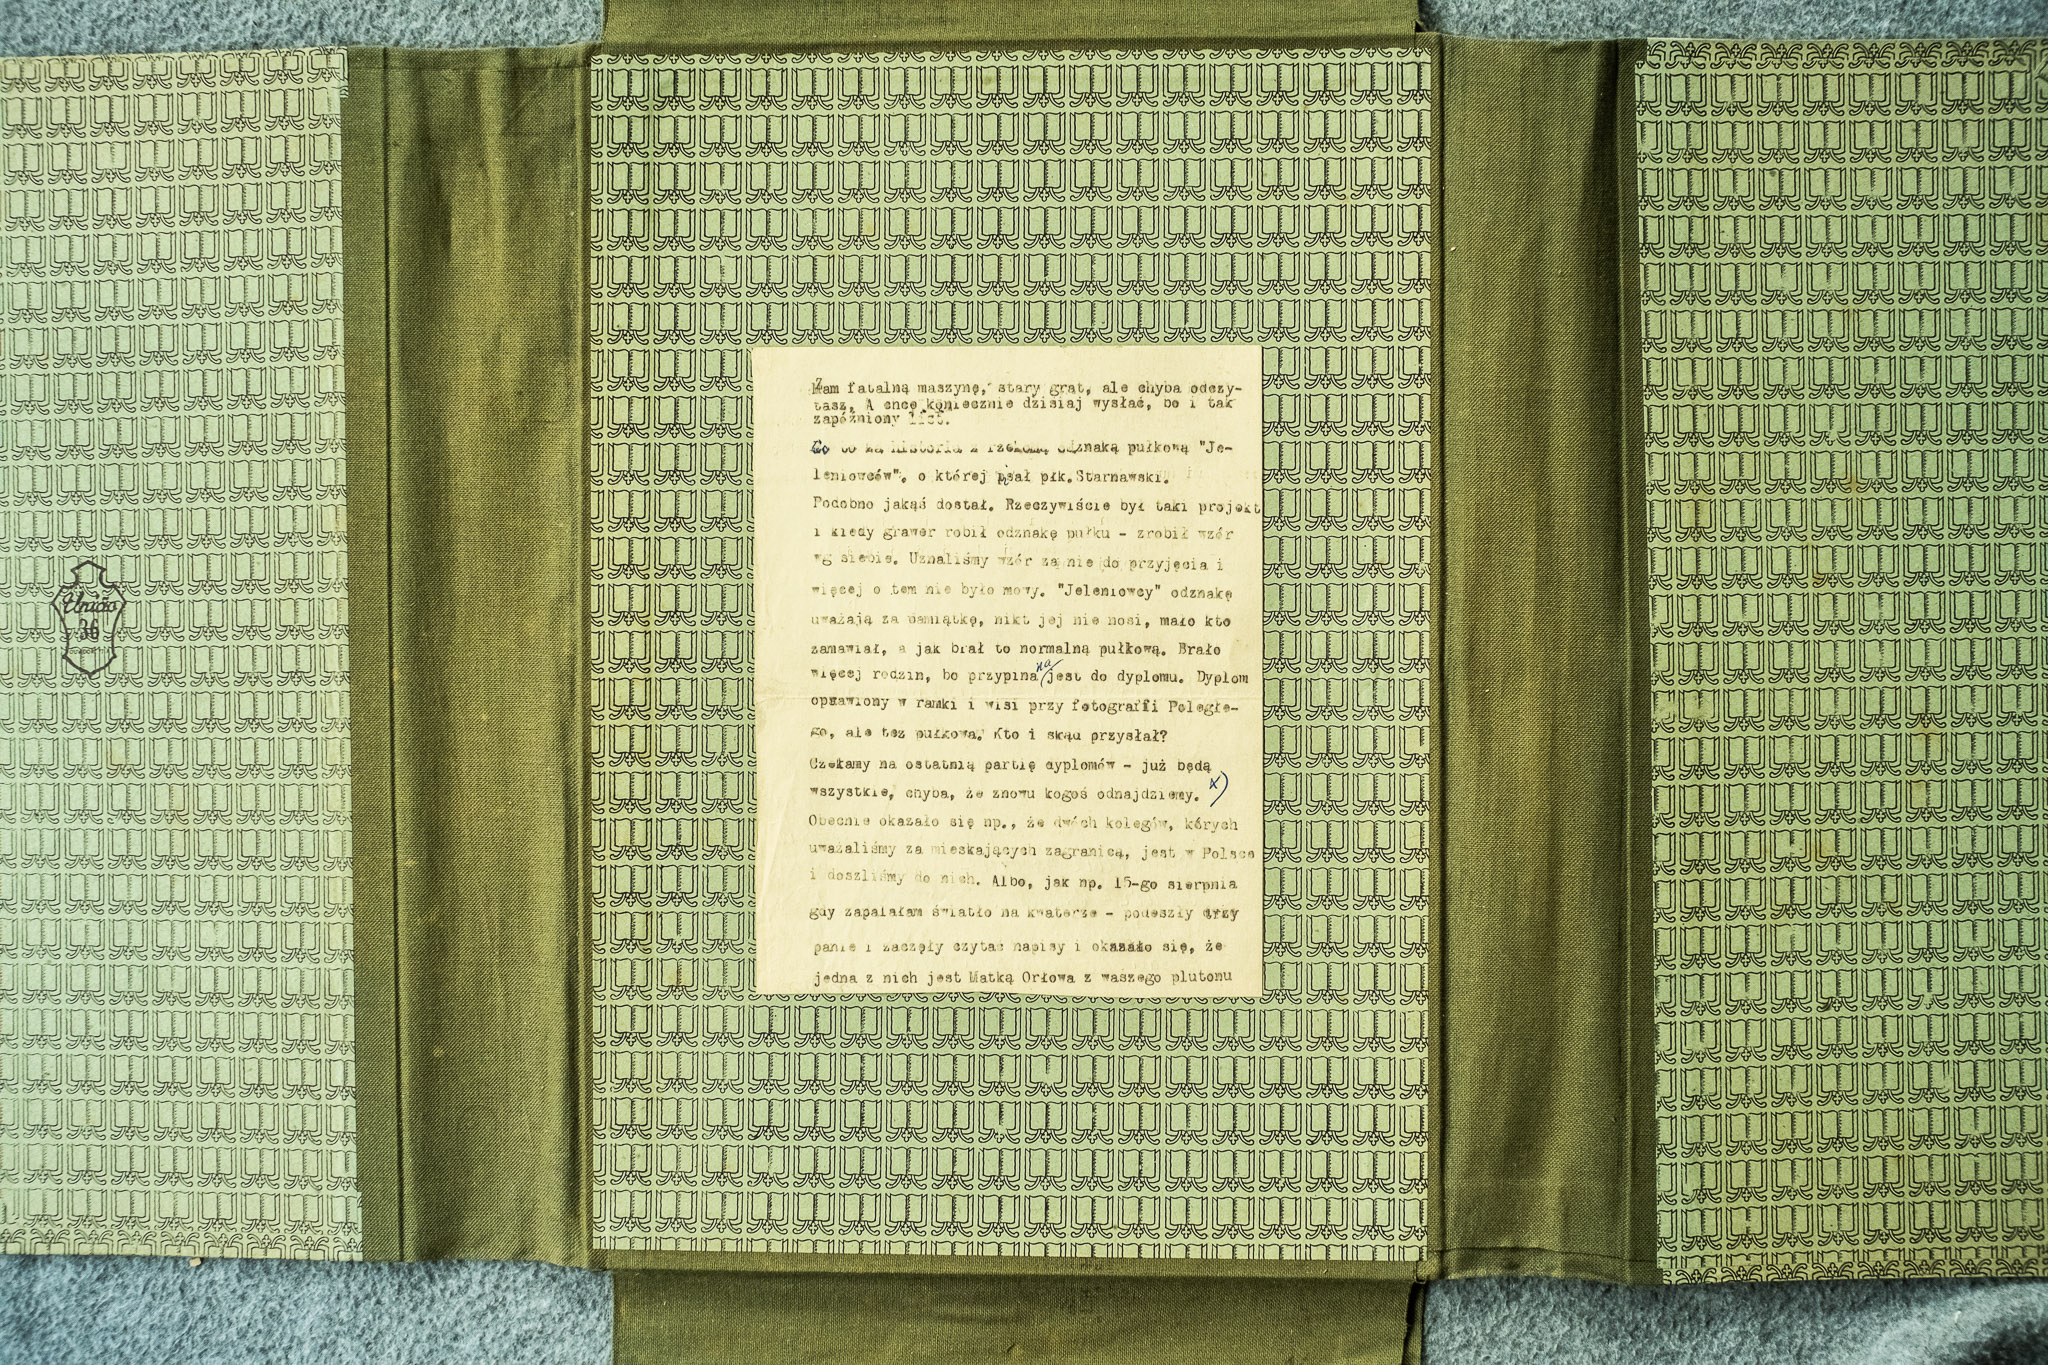 Mam fatalną maszynę, stary grat, ale chyba odczy-
tasz. A chcę koniecznie dzisiaj wysłać, bo i tak
zapóźniony list.
Co to za historia z rzekomą odznaką pułkową "Je-
leniowców", o której pisał płk.Starnawski.
Podobno jakąś dostał. Rzeczywiście był taki projekt
i kiedy grawer robił odznakę pułku - zrobił wzór
wg siebie. Uznaliśmy wzór za nie do przyjęcia i
więcej o tem nie było mowy. "Jeleniowcy" odznakę
uważają za pamiątkę, nikt jej nie nosi, mało kto
zamawiał, a jak brał to normalną pułkową. Brało
więcej rodzin, bo przypina na jest do dyplomu. Dyplom
oprawiony w ramki i wisi przy fotografii Poległe-
go, ale też pułkowa. Kto i skąd przysłał?
Czekamy na ostatnią partię dyplomów - już będą
wszystkie, chyba, że znowu kogoś odnajdziemy. x)
Obecnie okazało się np., że dwóch kolegów, kórych
uważaliśmy za mieskających zagranicą, jest w Polsce
i doszliśmy do nich. Albo, jak np. 15-go sierpnia
gdy zapalałam światło na kwaterze - podeszły trzy
panie i zaczęły czytać napisy i okazało się, że
jedna z nich jest Matką Orłowa z waszego plutonu
União
36